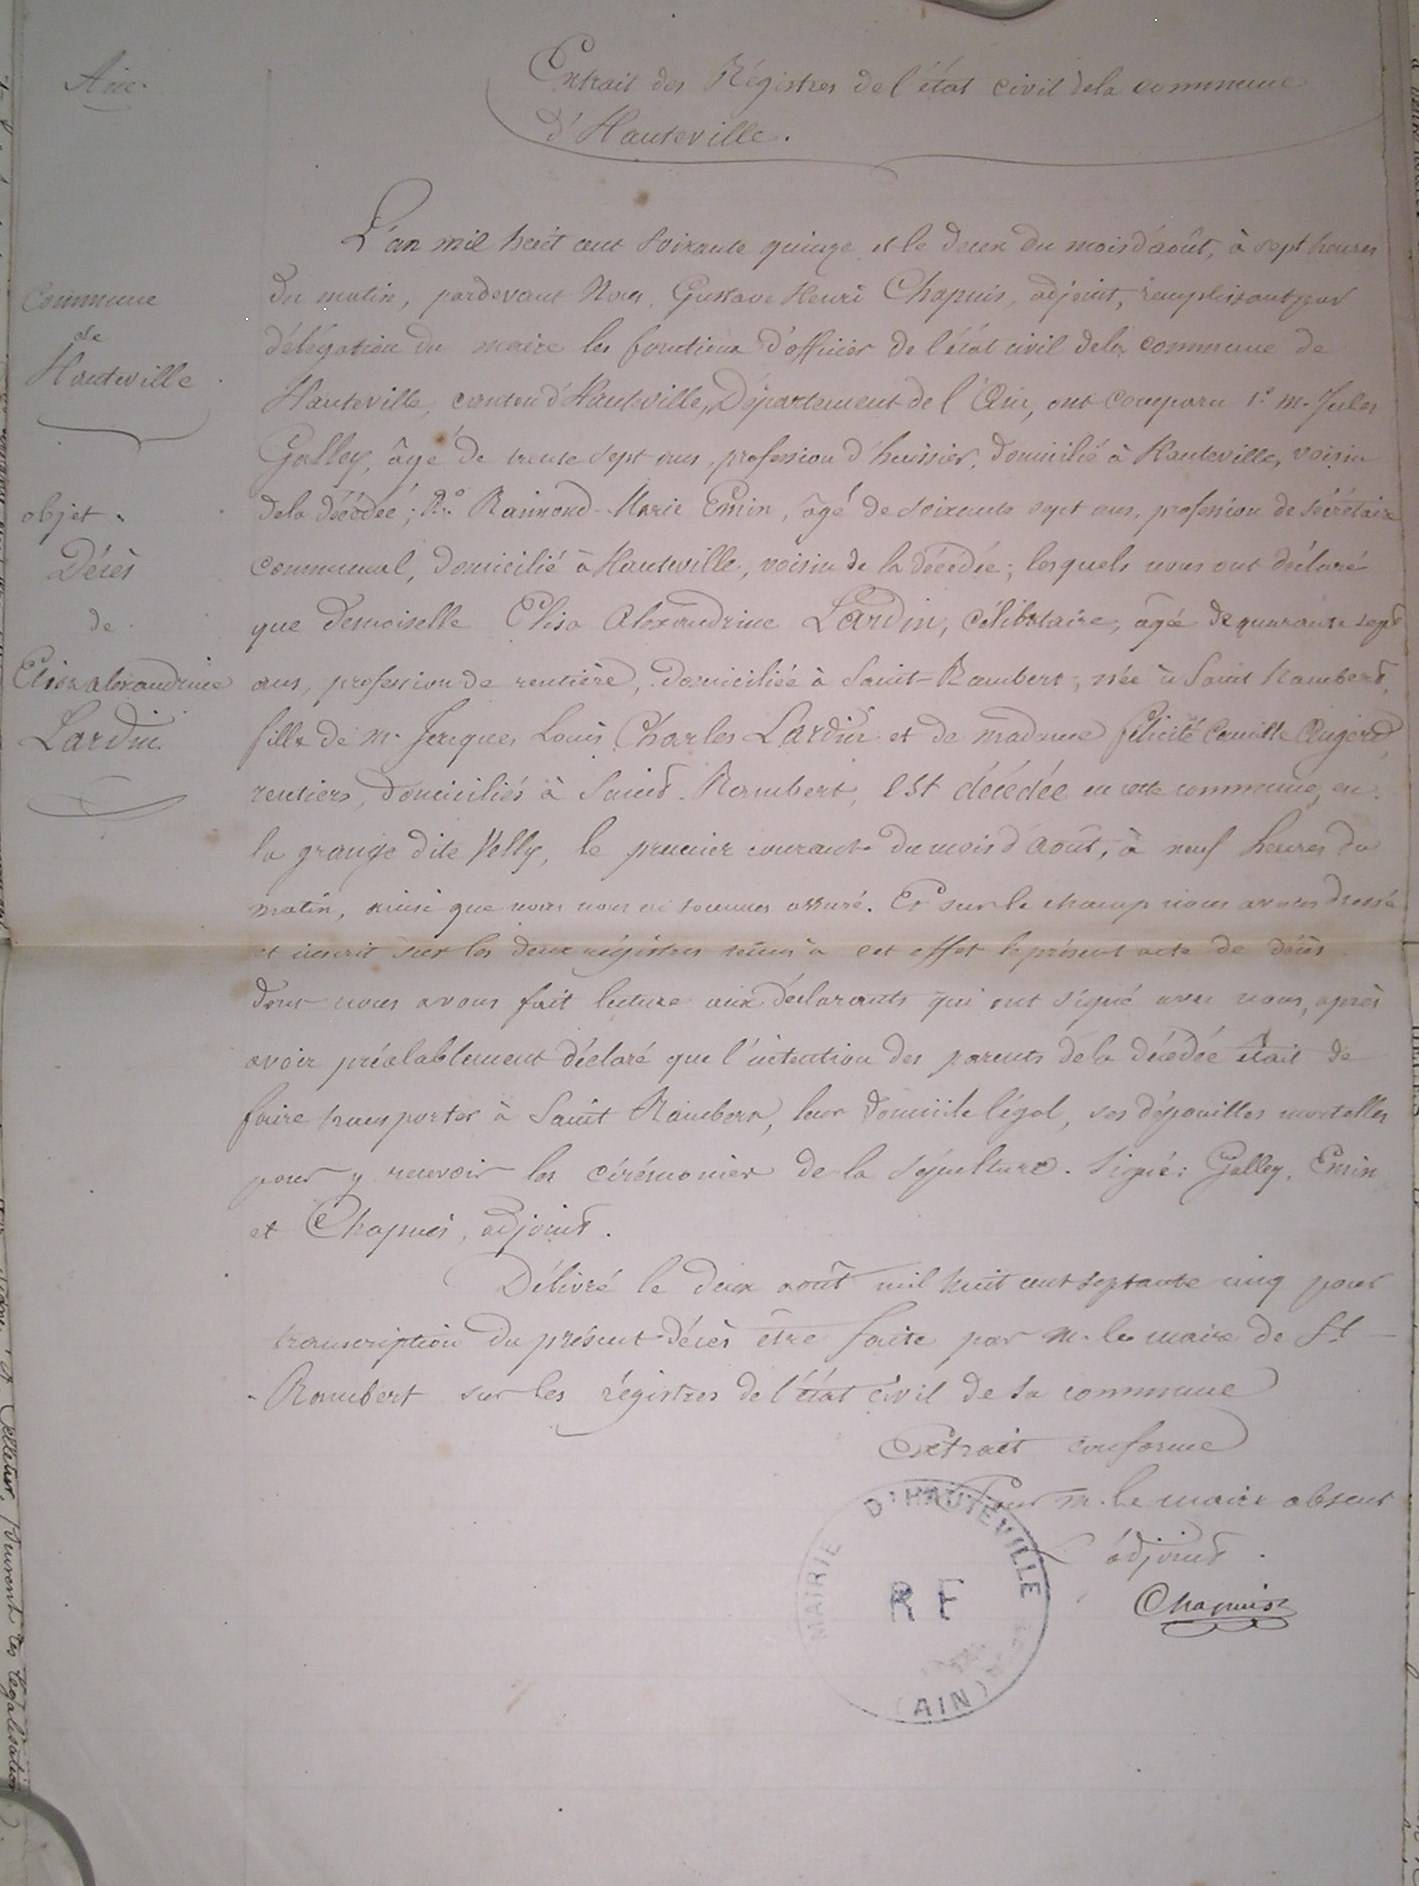 Ain.
Extrait des Régistres de l'état civil de la commune
d'Hauteville.
Commune
de
Hauteville
objet.
Décès
de
Elisa alexandrine
Lardin
L'an mil huit cent soixante quinze et le deux du mois d'août, à sept heures
du matin, pardevant Nous, Gustave Henri Chapuis, adjoint, remplissant par
délégation du maire les fonctions d'officier de l'état civil de la commune de
Hauteville, canton d'Hauteville, Département de l'Ain, ont comparu 1º m. Jules
Galley, âgé de trente sept ans, profession d'huissier, domicilié à Hauteville, voisin
de la décédée; 2º Raimond Marie Emin, âgé de soixante sept ans, profession de sécrétaire
communal, domicilié à Hauteville, voisin de la décédée; lesquels nous ont déclaré
que demoiselle Elisa Alexandrine Lardin, célibataire, âgée de quarante sept
ans, profession de rentière, domiciliée à Saint-Rambert, née à Saint Rambert,
fille de m. Jacques Louis Charles Lardin et de madame félicité Camille Augerd,
rentiers, domiciliés à Saint-Rambert, est décédée en cette commune, en
la grange dite Velly, le premier courant du mois d'août, à neuf heures du
matin, ainsi que nous nous en sommes assuré. Et sur le champ nous avons dressé
et inscrit sur les deux régistres tenus à cet effet le présent acte de décès
dont nous avons fait lecture aux déclarants qui ont signé avec nous, après
avoir préalablement déclaré que l'intention des parents de la décédée était de
faire transporter à Saint Rambert, leur domicile légal, ses dépouilles mortelles
pour y recevoir les cérémonies de la sépulture. Signé: Galley, Emin
et Chapuis, adjoint.
Délivré le deux août mil huit cent septante cinq pour
transcription du présent décès être faite par m. le maire de St
-Rambert sur les régistres de l'état civil de sa commune
Extrait conforme
Pour m. le maire absent
L'adjoint.
Chapuis
MAIRIE D'HAUTEVILLE
RF
(AIN)